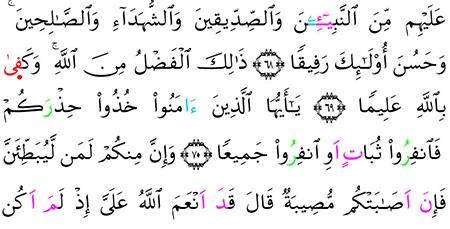 عَلَيْهِم مِّنَ ٱلنَّبِيٓـِٔۧنَ وَٱلصِّدِّيقِينَ وَٱلشُّهَدَآءِ وَٱلصَّٰلِحِينَۚ
وَحَسُنَ أُوْلَٰٓئِكَ رَفِيقٗا ٦٨ ذَٰلِكَ ٱلْفَضْلُ مِنَ ٱللَّهِۚ وَكَفۭيٰ
بِاللَّهِ عَلِيمٗا ٦٩ يَٰٓأَيُّهَا ٱلَّذِينَ ءَامَنُواْ خُذُواْ حِذْرَكُمْ
فَٱنفِرُواْ ثُبَاتٍ اَوِ ٱنفِرُواْ جَمِيعٗا ٧٠ وَإِنَّ مِنكُمْ لَمَن لَّيُبَطِّئَنَّ
فَإِنَ اَصَٰبَتْكُم مُّصِيبَةٞ قَالَ قَدَ اَنْعَمَ ٱللَّهُ عَلَيَّ إِذْ لَمَ اَكُن